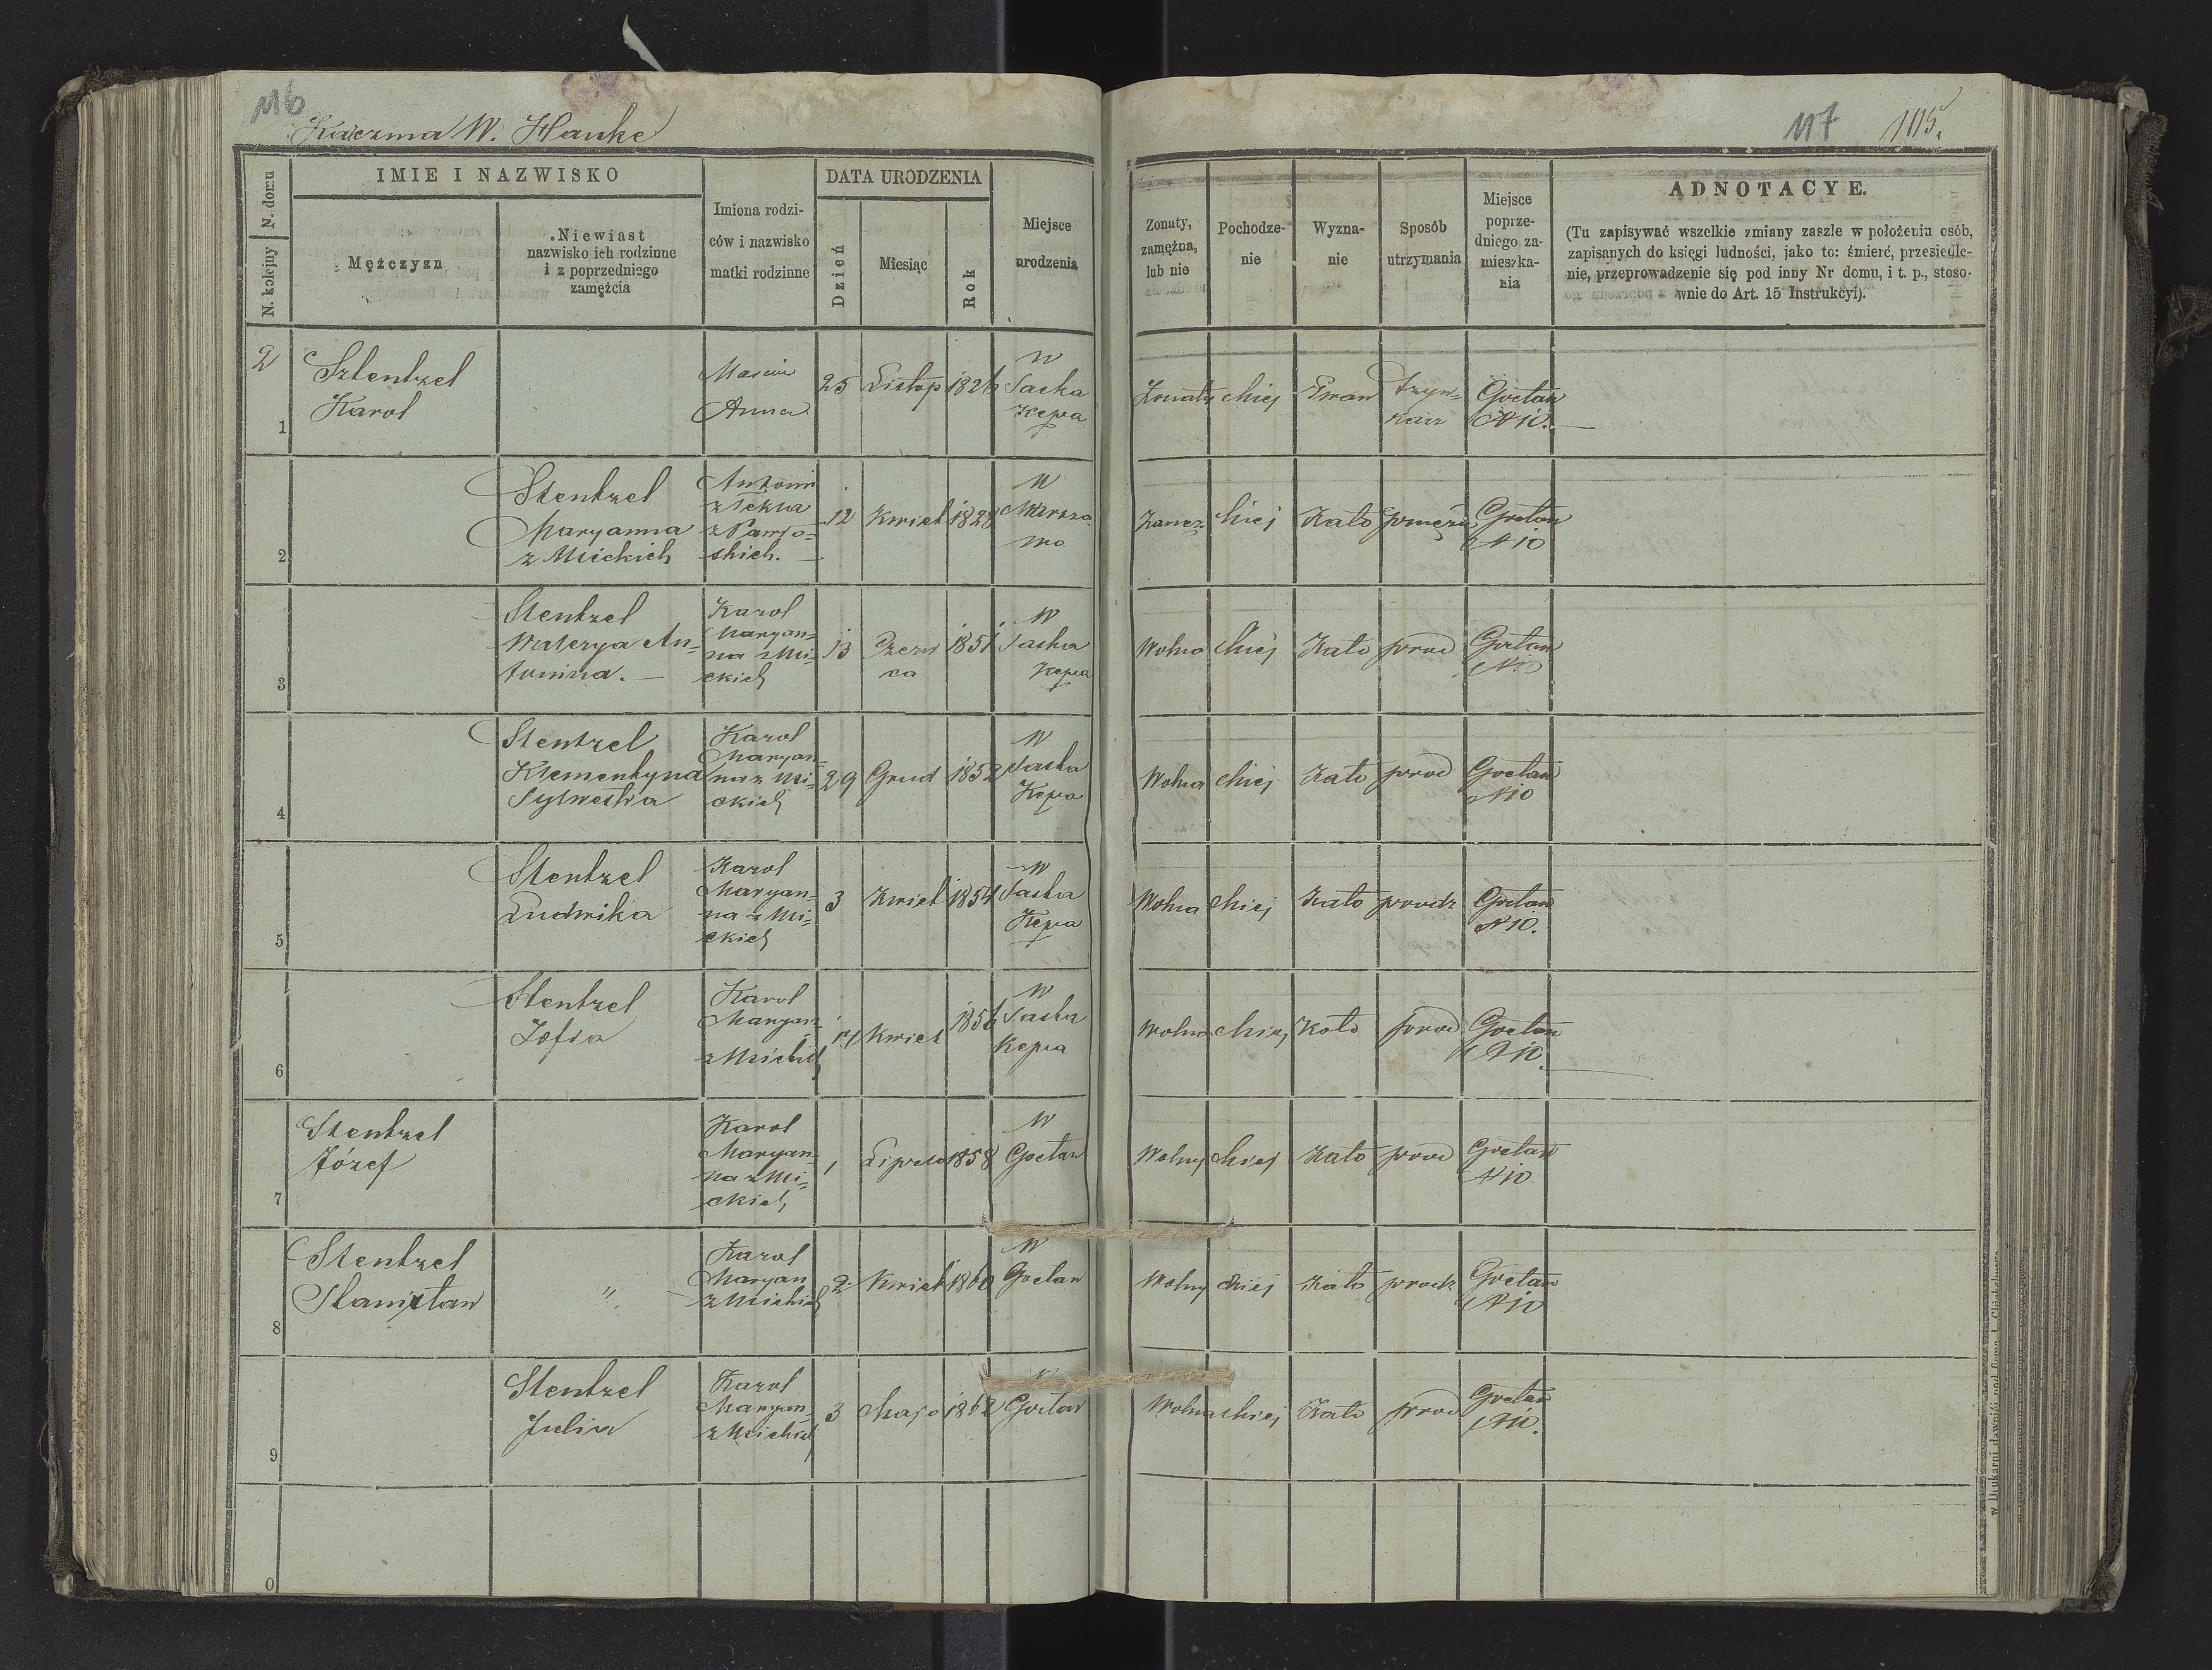 116
Kaczma W. Hauke
117 105.
N. kolejny N. domu
IMIE I NAZWISKO
Mężczyzn
Niewiast
nazwisko ich rodzinne
i z poprzedniego
zamężcia
Imiona rodzi-
ców i nazwisko
matki rodzinne
DATA URODZENIA
Dzień
Miesiąc
Rok
Miejsce
urodzenia
Zonaty,
zamężna,
lub nie
Pochodze-
nie
Wyzna-
nie
Sposób
utrzymania
Miejsce
poprze-
dniego za-
mieszka-
nia
ADNOTACYE.
(Tu zapisywać wszelkie zmiany zaszłe w położeniu osób,
zapisanych do księgi ludności, jako to: śmierć, przesiedle-
nie, przeprowadzenie się pod inny Nr domu, i t. p., stoso-
wnie do Art. 15 Instrukcyi).
2
1
Sztentzel
Karol
Marcin
Anna
25
Listop
1826
W
Saska
Kępa
Żonaty
chiej
Ewan
Szyn-
karz
Gocław
N 10.
2
Stentzel
Maryanna
z Mickich
Antoni
z Tekla
12
Kwiet
1828
W
chiej
Kato
przmężu
Gocław
N 10
3
Stentzel
Waleryja An-
tonina.
Karol
Maryan-
na z Mi-
ckich
13
Czerw
ca
1851
W
Saska
Kępa
Wolna
chiej
Kato
prod
Gocław
4
Stentzel
Klementyna
Sylwestra
Karol
Maryan-
na z Mi-
ckich
29
Grud
1852
W
Saska
Kępa
Wolna
chiej
Kato
prod
Gocław
N 10
5
Stentzel
Ludwika
Karol
Maryan-
na z Mi-
ckich
3
Kwiet
1854
W
Saska
Kępa
Wolna
chiej
Kato
prodz
Gocław
N 10.
6
Stentzel
Zofia
Karol
Maryan
z Mickich
Kwiet
1856
W
Saska
Kępa
Wolna
chiej
Kato
prod
Gocław
N 10.
7
Stentzel
Józef
Karol
Maryan-
na z Mi-
ckich
1
Lipca
1858
W
Gocław
Wolny
chiej
Kato
prod
Gocław
N 10
8
Stentzel
Stanisław
"
Karol
Maryan
z Mickich
2
Kwiet
1860
W
Gocław
Wolny
chiej
Kato
prodz
Gocław
N 10
9
Stentzel
Julia
Karol
Maryan-
z Mickich
3
Maja
1862
W
Gocław
Wolna
chiej
Kato
prod
Gocław
N 10.
0